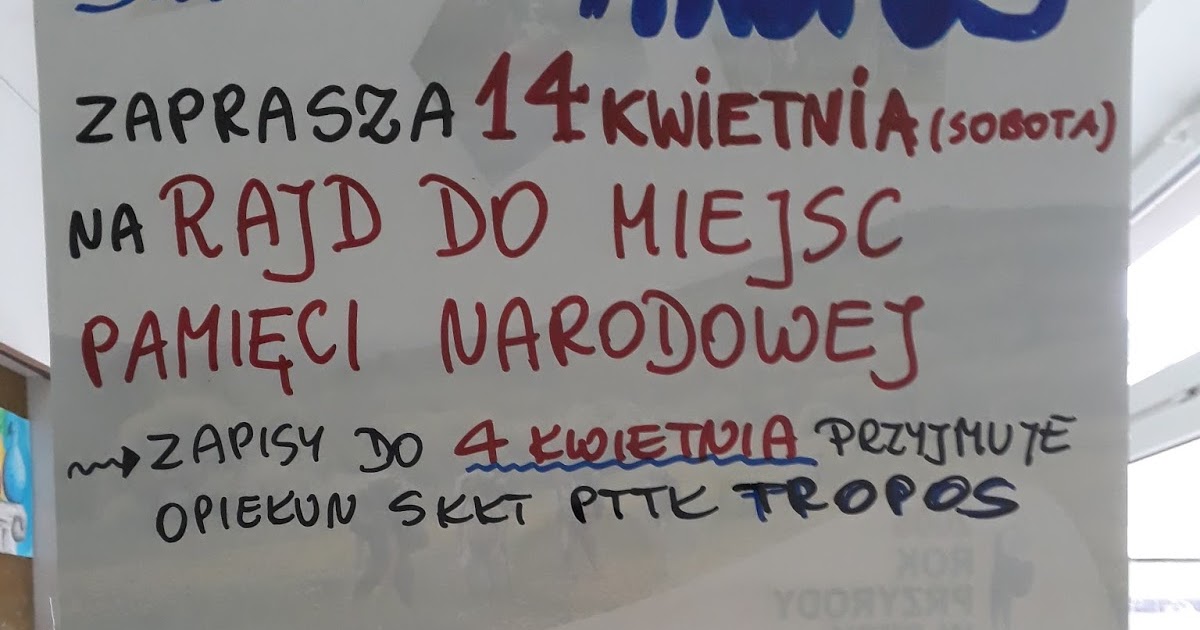 ZAPRASZA 14 KWIETNIA (SOBOTA)
NA RAJD DO MIEJSC
PAMIĘCI NARODOWEJ
ZAPISY DO 4 KWIETNIA PRZYJMUJE
OPIEKUN SKKT PTTK TROPOS
ROK
PRZYRODY